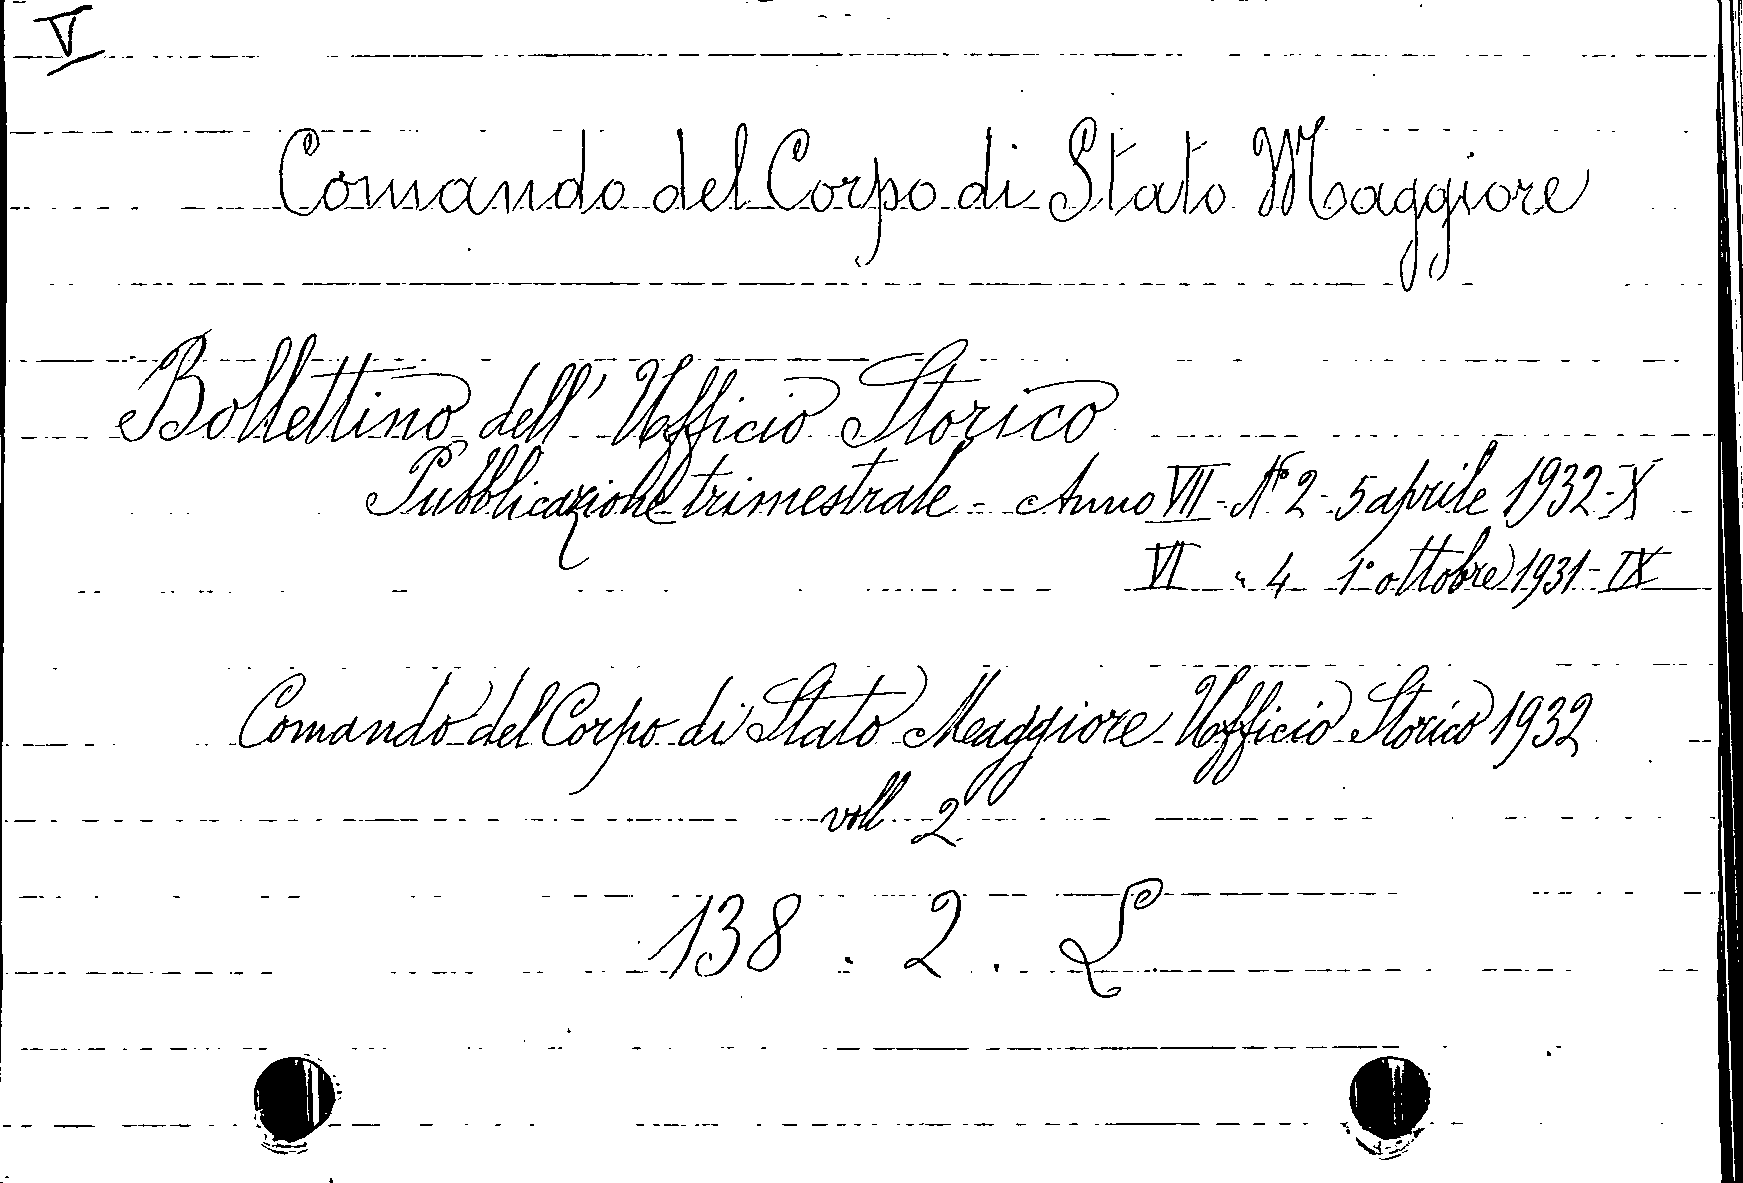 V
Comando del Corpo di Stato Maggiore
Bollettino dell' Ufficio Storico
Pubblicazione trimestrale - Anno VII - N° 2 - 5 aprile 1932 - X
VI " 4 1° ottobre 1931 - IX
Comando del Corpo di Stato Maggiore Ufficio Storico 1932
voll 2
138 . 2 . L